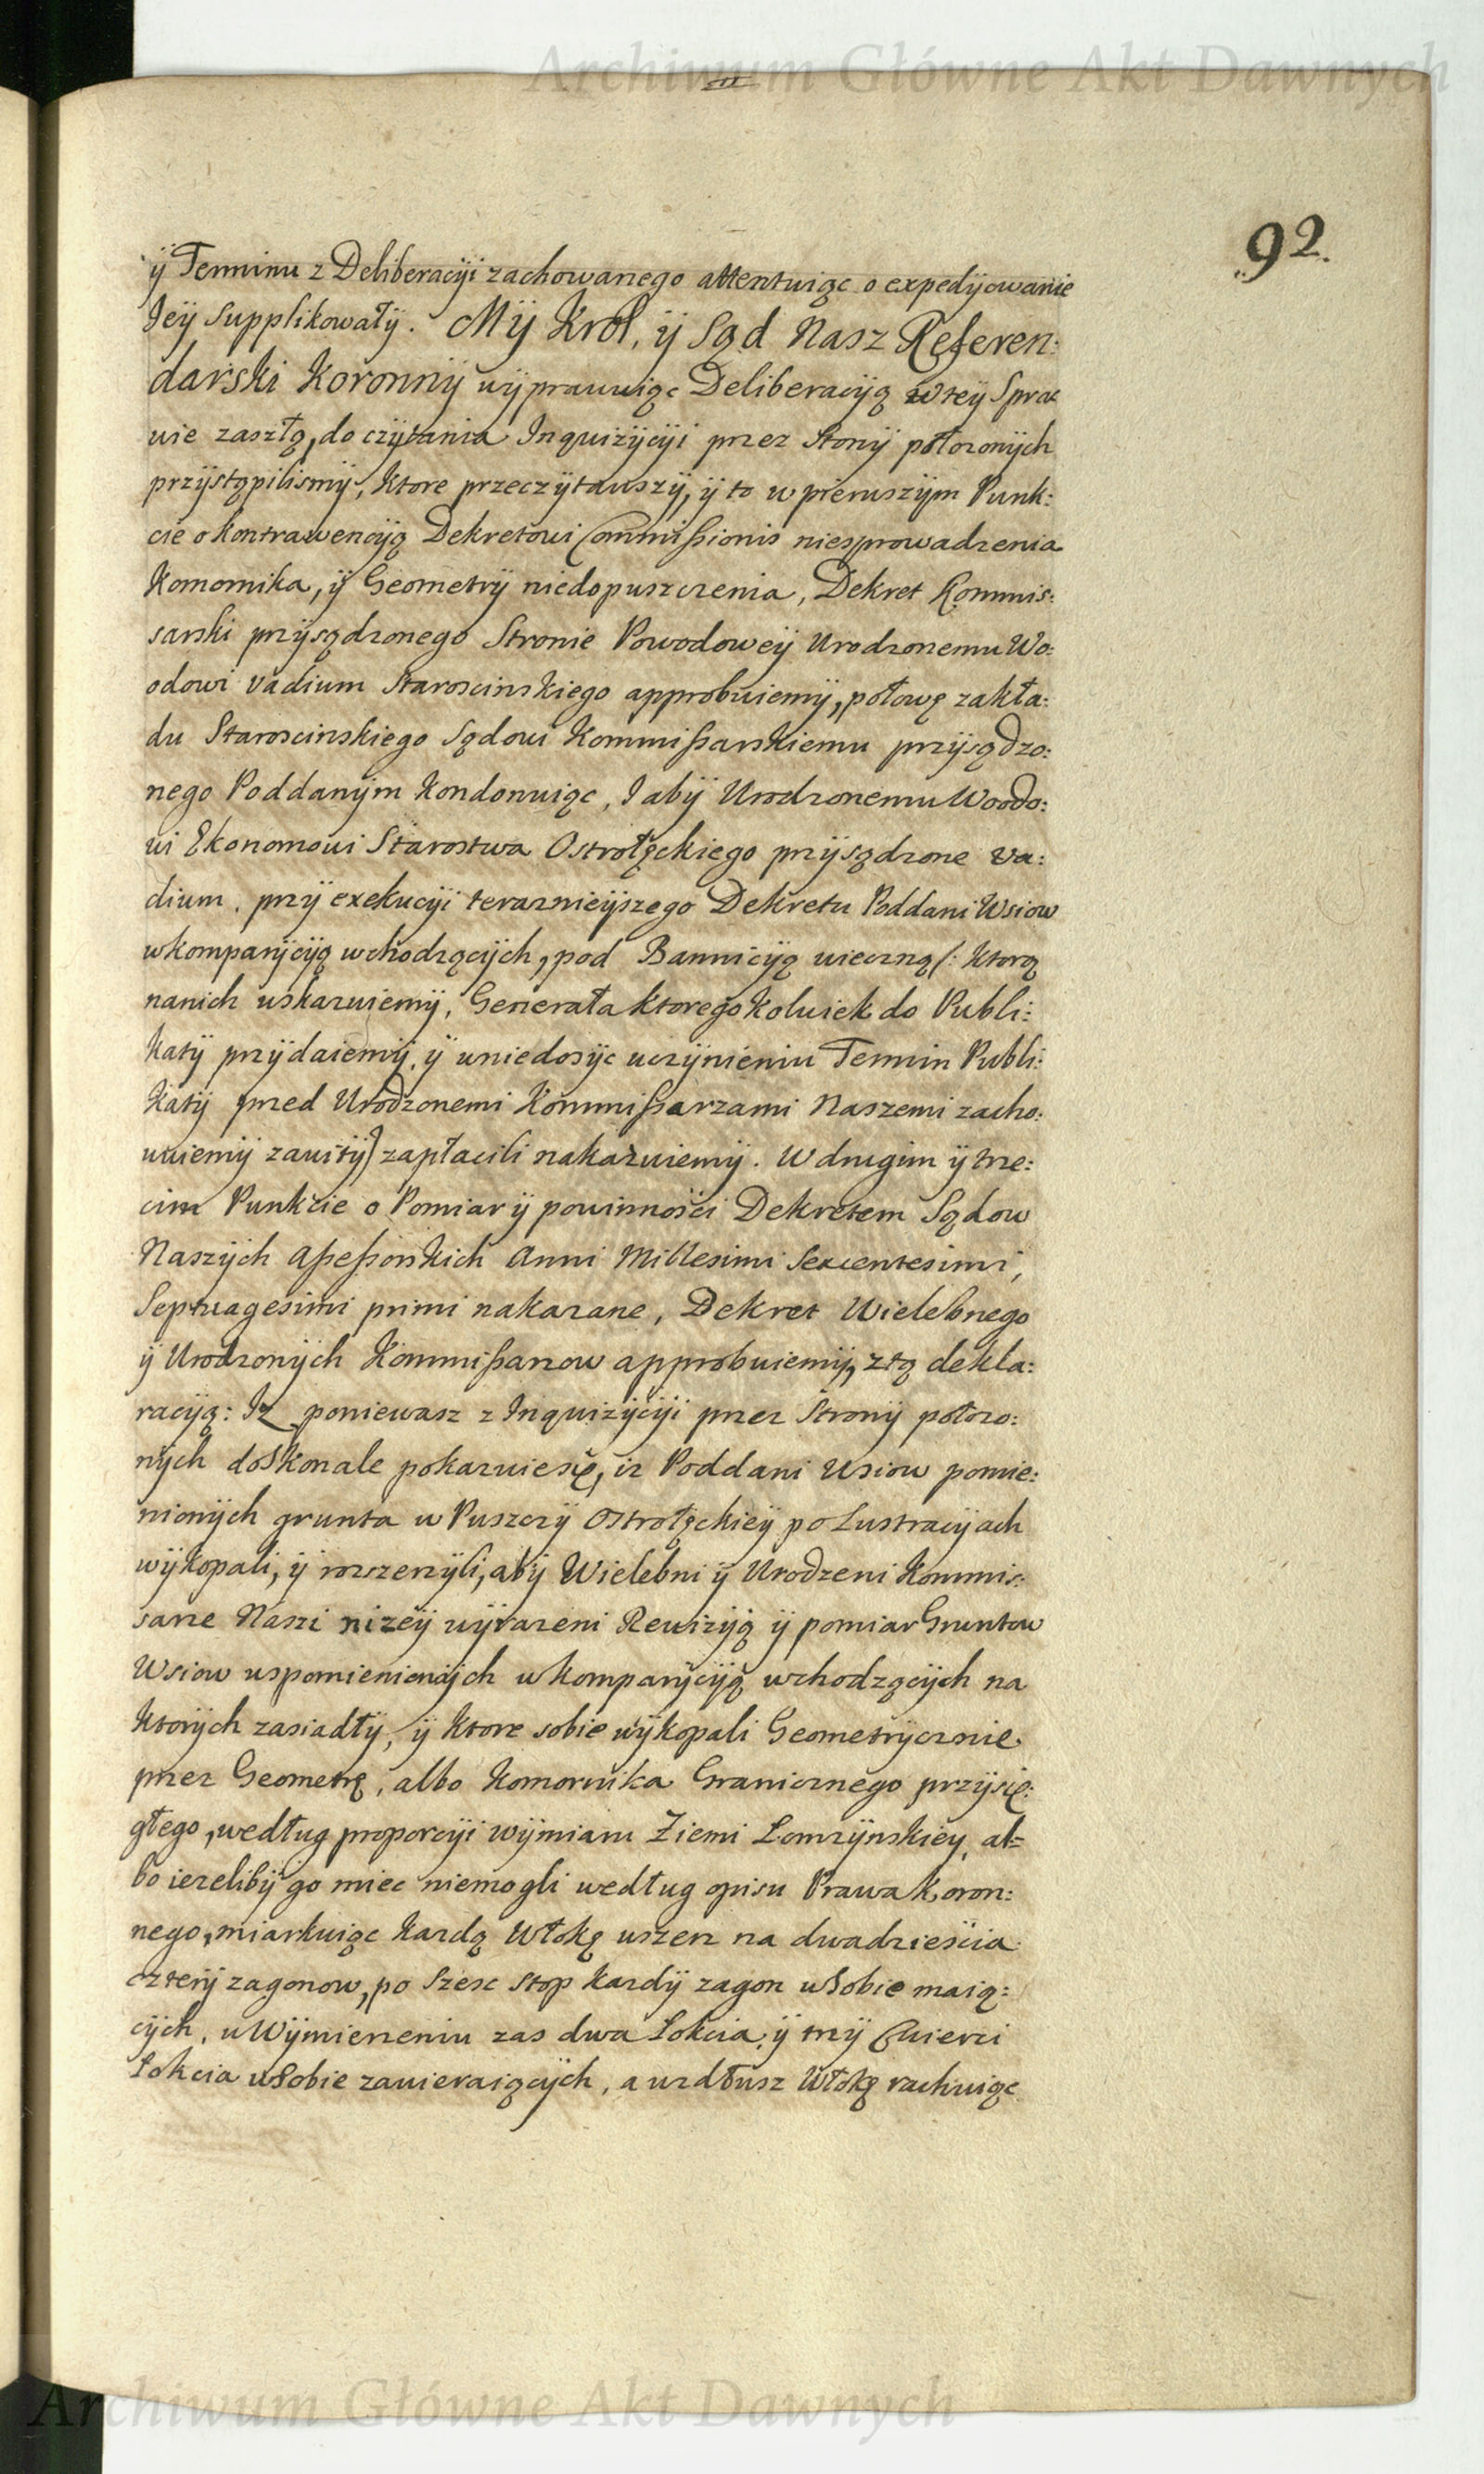 Archiwum Główne Akt Dawnych
92.
ÿ Terminu z Deliberacÿi zachowanego attentuiąc o expedÿowanie
Jeÿ Supplikowałÿ. Mÿ Krol, ÿ Sąd Nasz Referen:
darski Koronnÿ wÿprawuiąc Deliberacÿą w teÿ Spra
wie zaszłą, do czÿtania Inquizÿcÿi przez Stonÿ połozonÿch
przÿstąpilismÿ, Ktore przeczÿtawszÿ, ÿ to w pierwszÿm Punk:
cie o kontrawencÿą Dekretowi Commissionis niesprowadzenia
Komornika, ÿ Geometrÿ niedopuszczenia, Dekret Kommis:
sarski przÿsądzonego Stronie Powodoweÿ Urodzonemu Wo:
odowi Vadium Staroscinskiego approbuiemÿ, połowę zakła:
du Staroscinskiego Sądowi Kommissarskiemu przÿsądzo:
nego Poddanÿm Kondonuiąc, J abÿ Urodzonemu Woodo:
wi Ekonomowi Starostwa Ostrołęckiego przÿsądzone va:
dium, przÿ exekucÿi teraznieÿszego Dekretu Poddani Wsiow
w kompanÿcÿą wchodzącÿch, pod Bannicÿą wieczną (: Ktorą
nanich wskazuiemÿ, Generała ktoregokolwiek do Publi:
katÿ przÿdaiemÿ, ÿ w niedosÿc uczÿnieniu Termin Publi:
Katÿ przed Urodzonemi Kommissarzami Naszemi zacho:
wuiemÿ zawitÿ) zapłacili nakazuiemÿ. W drugim ÿ trze:
cim Punkcie o Pomiar ÿ powinności Dekretem Sądow
Naszÿch Assessorskich Anni Millesimi Sexcentesimi,
Septuagesimi primi nakazane, Dekret Wielebnego
ÿ Urodzonÿch Kommissarzow approbuiemÿ, z tą dekla:
racÿą: Iz poniewasz z Inquizÿcÿi przez Stronÿ połozo:
nÿch doskonale pokazuiesię, iz Poddani Wsiow pomie:
nionÿch grunta w Puszczÿ Ostrołęckieÿ po Lustracÿach
wÿkopali, ÿ rozszerzÿli, abÿ Wielebni ÿ Urodzeni Kommis:
sarze Naszi nizeÿ wÿrazeni Rewizÿą ÿ pomiar Gruntow
Wsiow wspomienionÿch w kompanÿcÿą wchodzącÿch na
Ktorÿch zasiadłÿ, ÿ Ktore sobie wÿkopali Geometrÿcznie
przez Geometrę, albo Komornika Granicznego przÿsię:
głego, według proporcÿi wÿmiaru Ziemi Łomzÿnskieÿ, al=
bo iezelibÿ go miec niemogli według opisu Prawa Koron:
nego, miarkuiąc Kazdą Włokę wszerz na dwadzieścia
czterÿ zagonow, po Szesc Stop kazdÿ zagon w Sobie maią:
cÿch, w Wÿmierzeniu zas dwa Łokcia, ÿ trzÿ Cwierci
Łokcia w Sobie zawieraiącÿch, a wzdłusz Włokę rachuiąc
Archiwum Główne Akt Dawnych